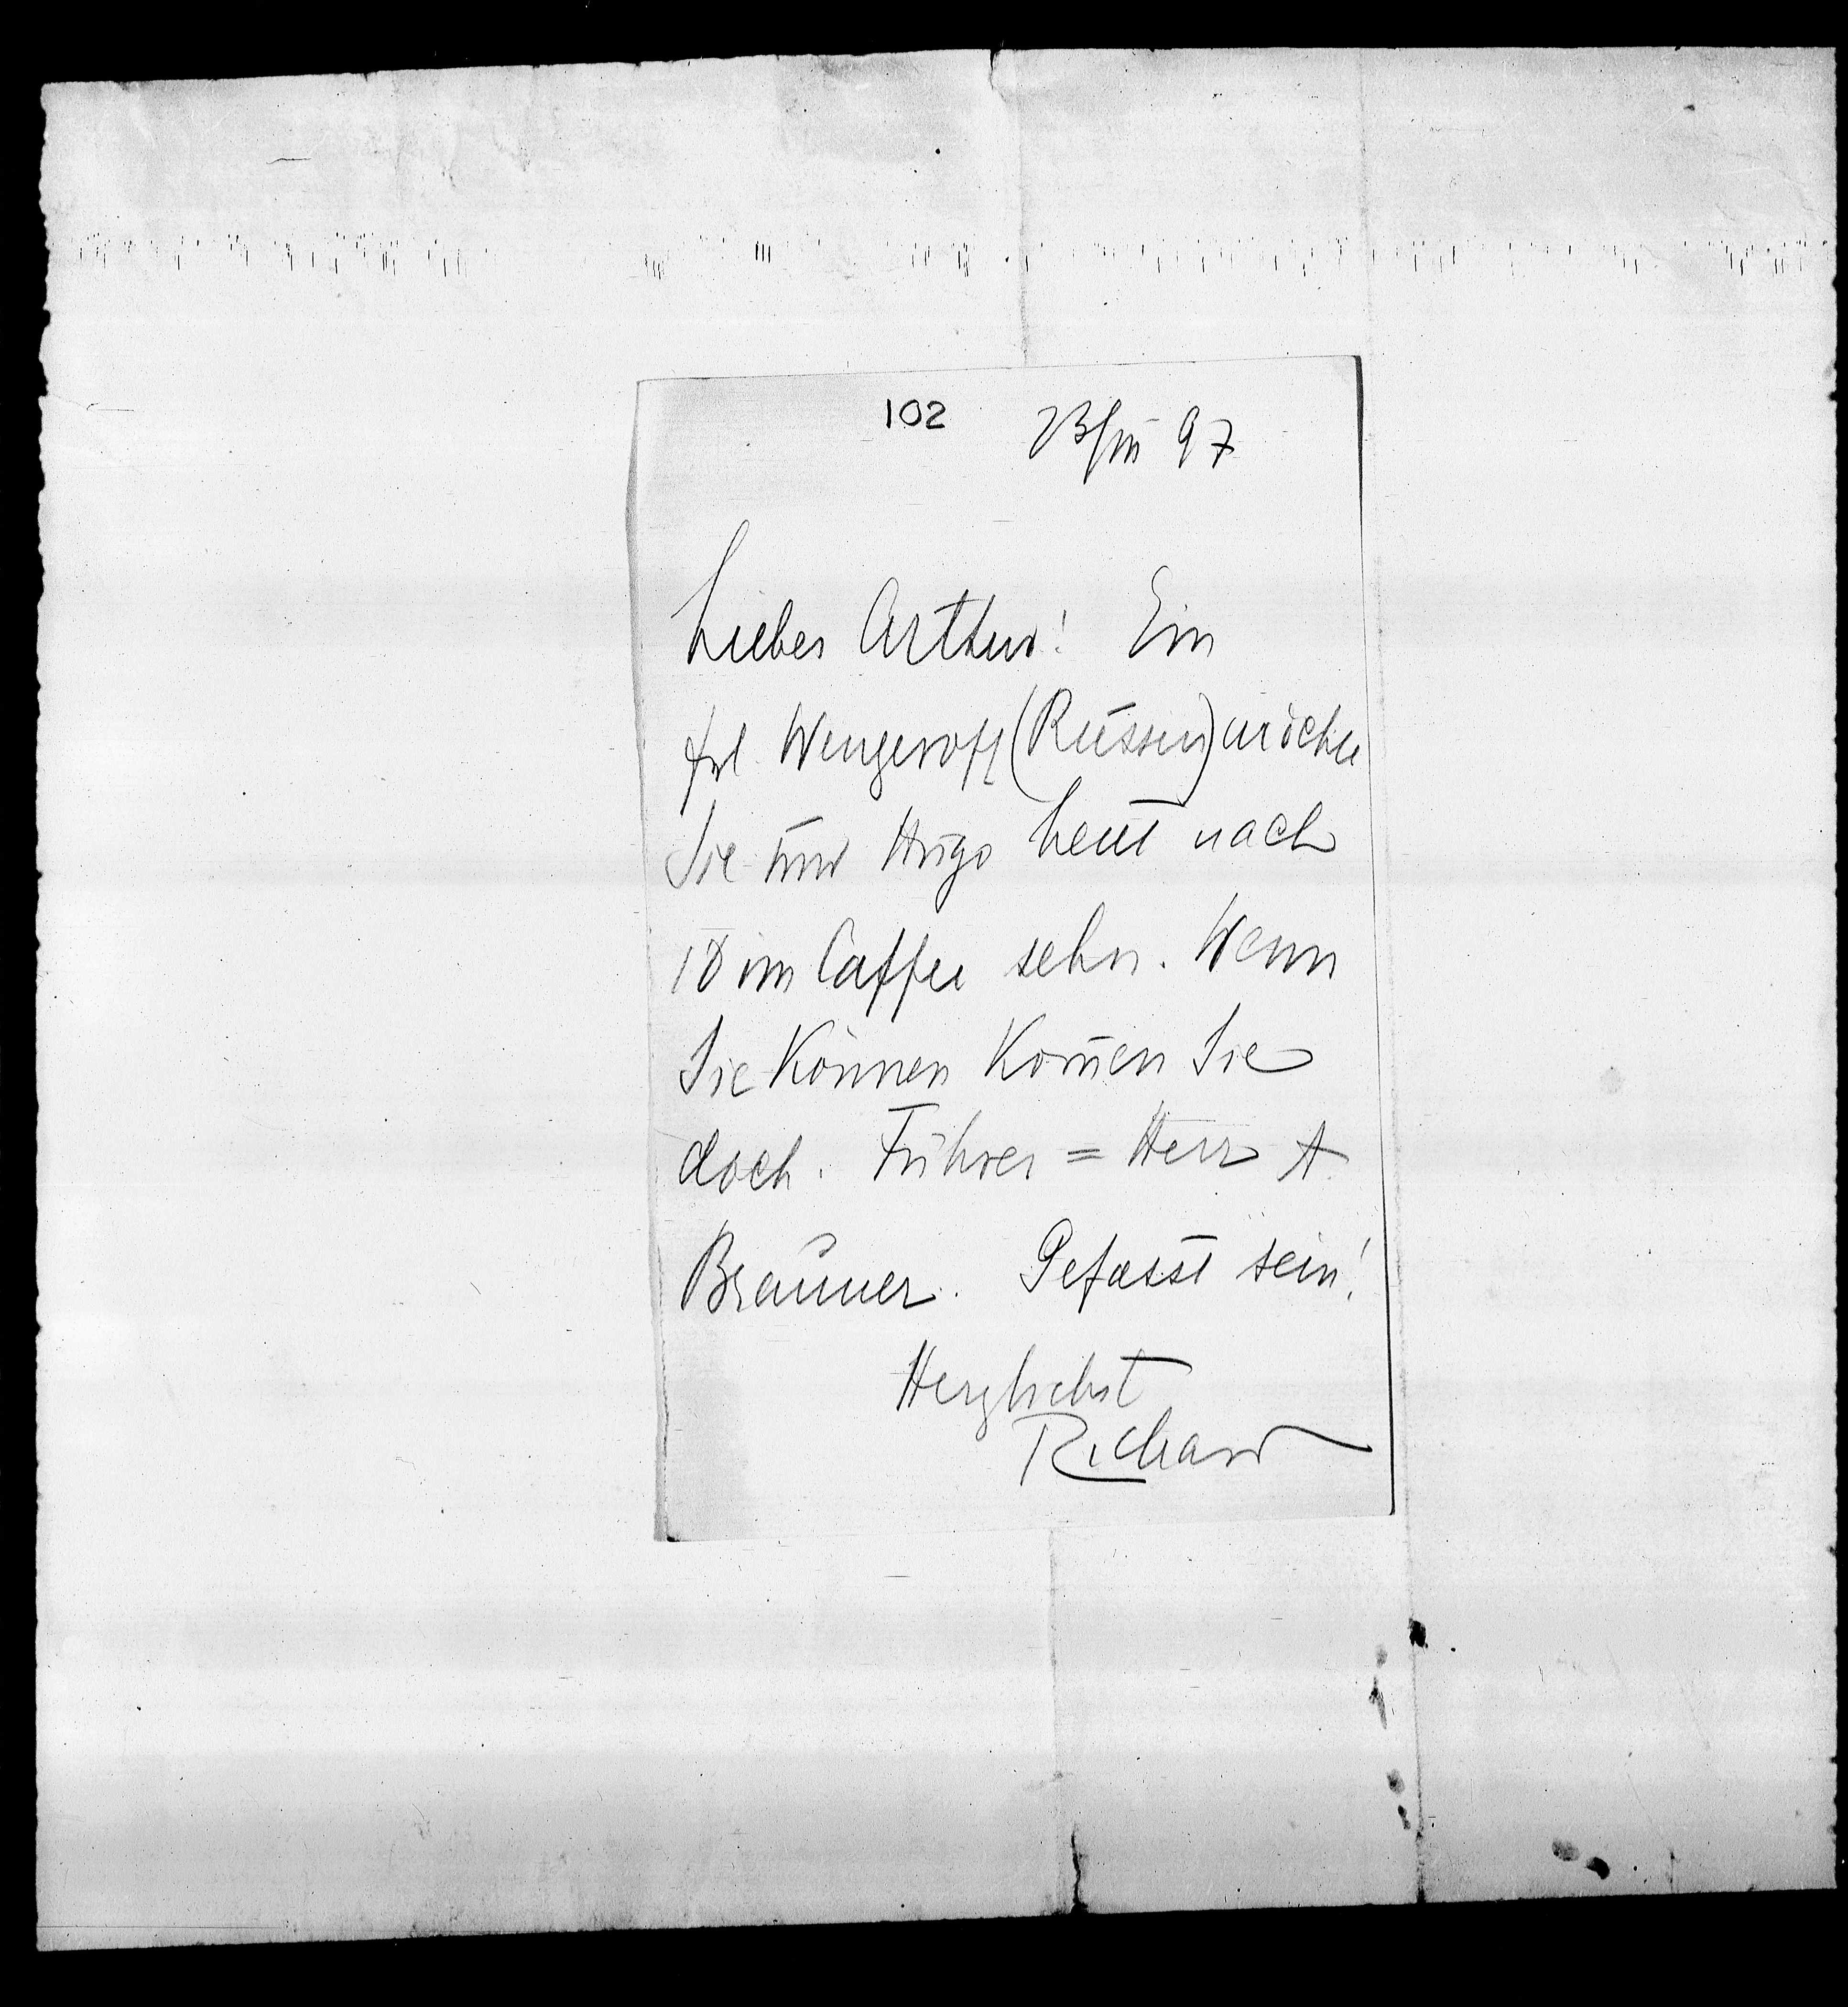 102 23/III 97
Lieber Arthur! Ein
Frl. Wengeroff (Russin) möchte
Sie und Hugo heut nach
10 im Caffee sehn. Wenn
Sie können kom̄en Sie
doch. Führer = Herr A.
Brauner. Gefasst sein!
Herzlichst
Richard